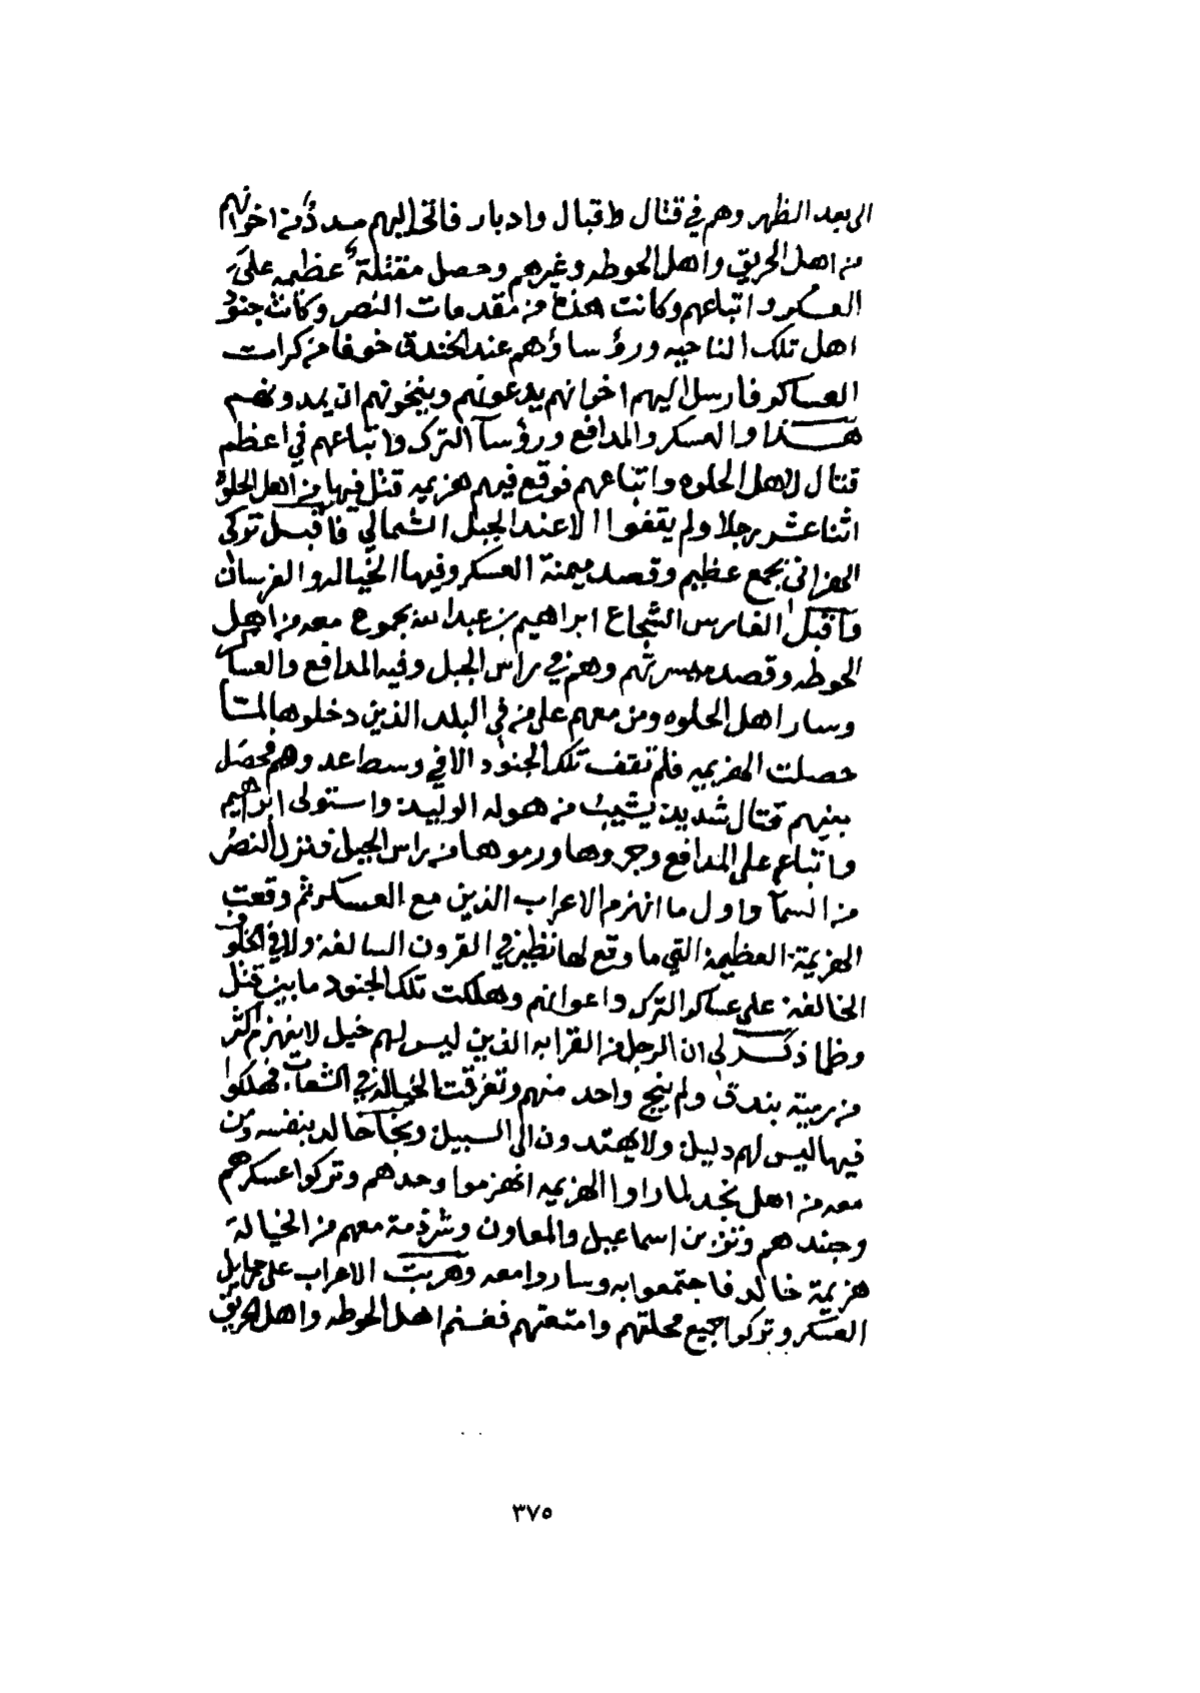 الى بعد الظهر وهم في قتال واقبال وادبار فاتى اليهم مدد من اخوانهم
من اهل الحريق واهل الحوطه وغيرهم وحصل مقتلة عظيمه على
العسكر واتباعهم وكانت هذه من مقدمات النصر وكانت جنود
اهل تلك الناحيه ورؤساؤهم عند الخندق خوفا من كرات
العساكر فارسل اليهم اخوانهم يدعونهم وينخونهم ان يمدونهم
هذا والعسكر والمدافع ورؤسآ الترك واتباعهم في اعظم
قتال لاهل الحلوه واتباعهم فوقع فيهم هزيمه قتل فيها من اهل الحلوه
اثنا عشر رجلا ولم يقفوا الا عند الجبل الشمالي فاقبل تركي
الهزاني بجمع عظيم وقصد ميمنة العسكر وفيها الخياله والفرسان
واقبل الفارس الشجاع ابراهيم بن عبدالله بجموع معه من اهل
الحوطه وقصد ميسرتهم وهم في راس الجبل وفيه المدافع والعساكر
وسار اهل الحلوه ومن معهم على من في البلد الذين دخلوها لمآ
حصلت الهزيمه فلم تقف تلك الجنود الا في وسط اعدوهم فحصل
بينهم قتال شديد يشيب من هوله الوليد واستولى ابراهيم
واتباعه على المدافع وجروها ورموها من راس الجبل فنزل النصر
من السمآ واول ما انهزم الاعراب الذين مع العسكر ثم وقعت
الهزيمة العظيمة التي ما وقع لها نظير في القرون السالفة ولا في الخلوف
الخالفة على عساكر الترك واعوانهم وهلكت تلك الجنود ما بين قتل
وظما ذكر لي ان الرجل من القرابه الذين ليس لهم خيل لا ينهزم اكثر
من رمية بندق ولم ينج واحد منهم وتفرقت الخياله في الشعاب فهلكوا
فيها ليس لهم دليل ولا يهتدون الى السبيل ونجا خالد بنفسه ومن
معه من اهل نجد لما راوا الهزيمه انهزموا وحدهم وتركوا عسكرهم
وجندهم وتزبن اسماعيل والمعاون وشرذمة معهم من الخيالة
هزيمة خالد فاجتمعوا به وساروا معه وهربت الاعراب على حرايل
العسكر وتركوا جميع محلتهم وامتعتهم فغنم اهل الحوطه واهل الحريق
٣٧٥